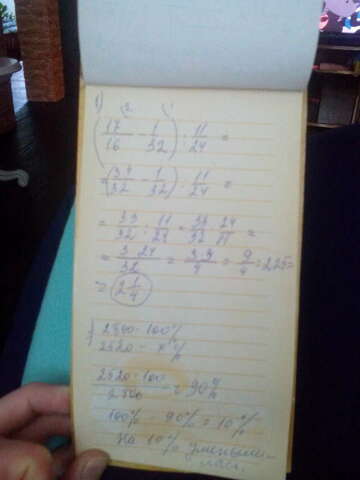 1)
(17/16 - 1/32) : 11/24 =
= (34/32 - 1/32) : 11/24 =
= 33/32 : 11/24 = 33/32 · 24/11 =
= 3·24/32 = 3·3/4 = 9/4 = 2,25 =
= 2 1/4
2800 - 100%
2520 - x%
2520·100/2800 = 90%
100% - 90% = 10%
на 10% уменьши-
лась.